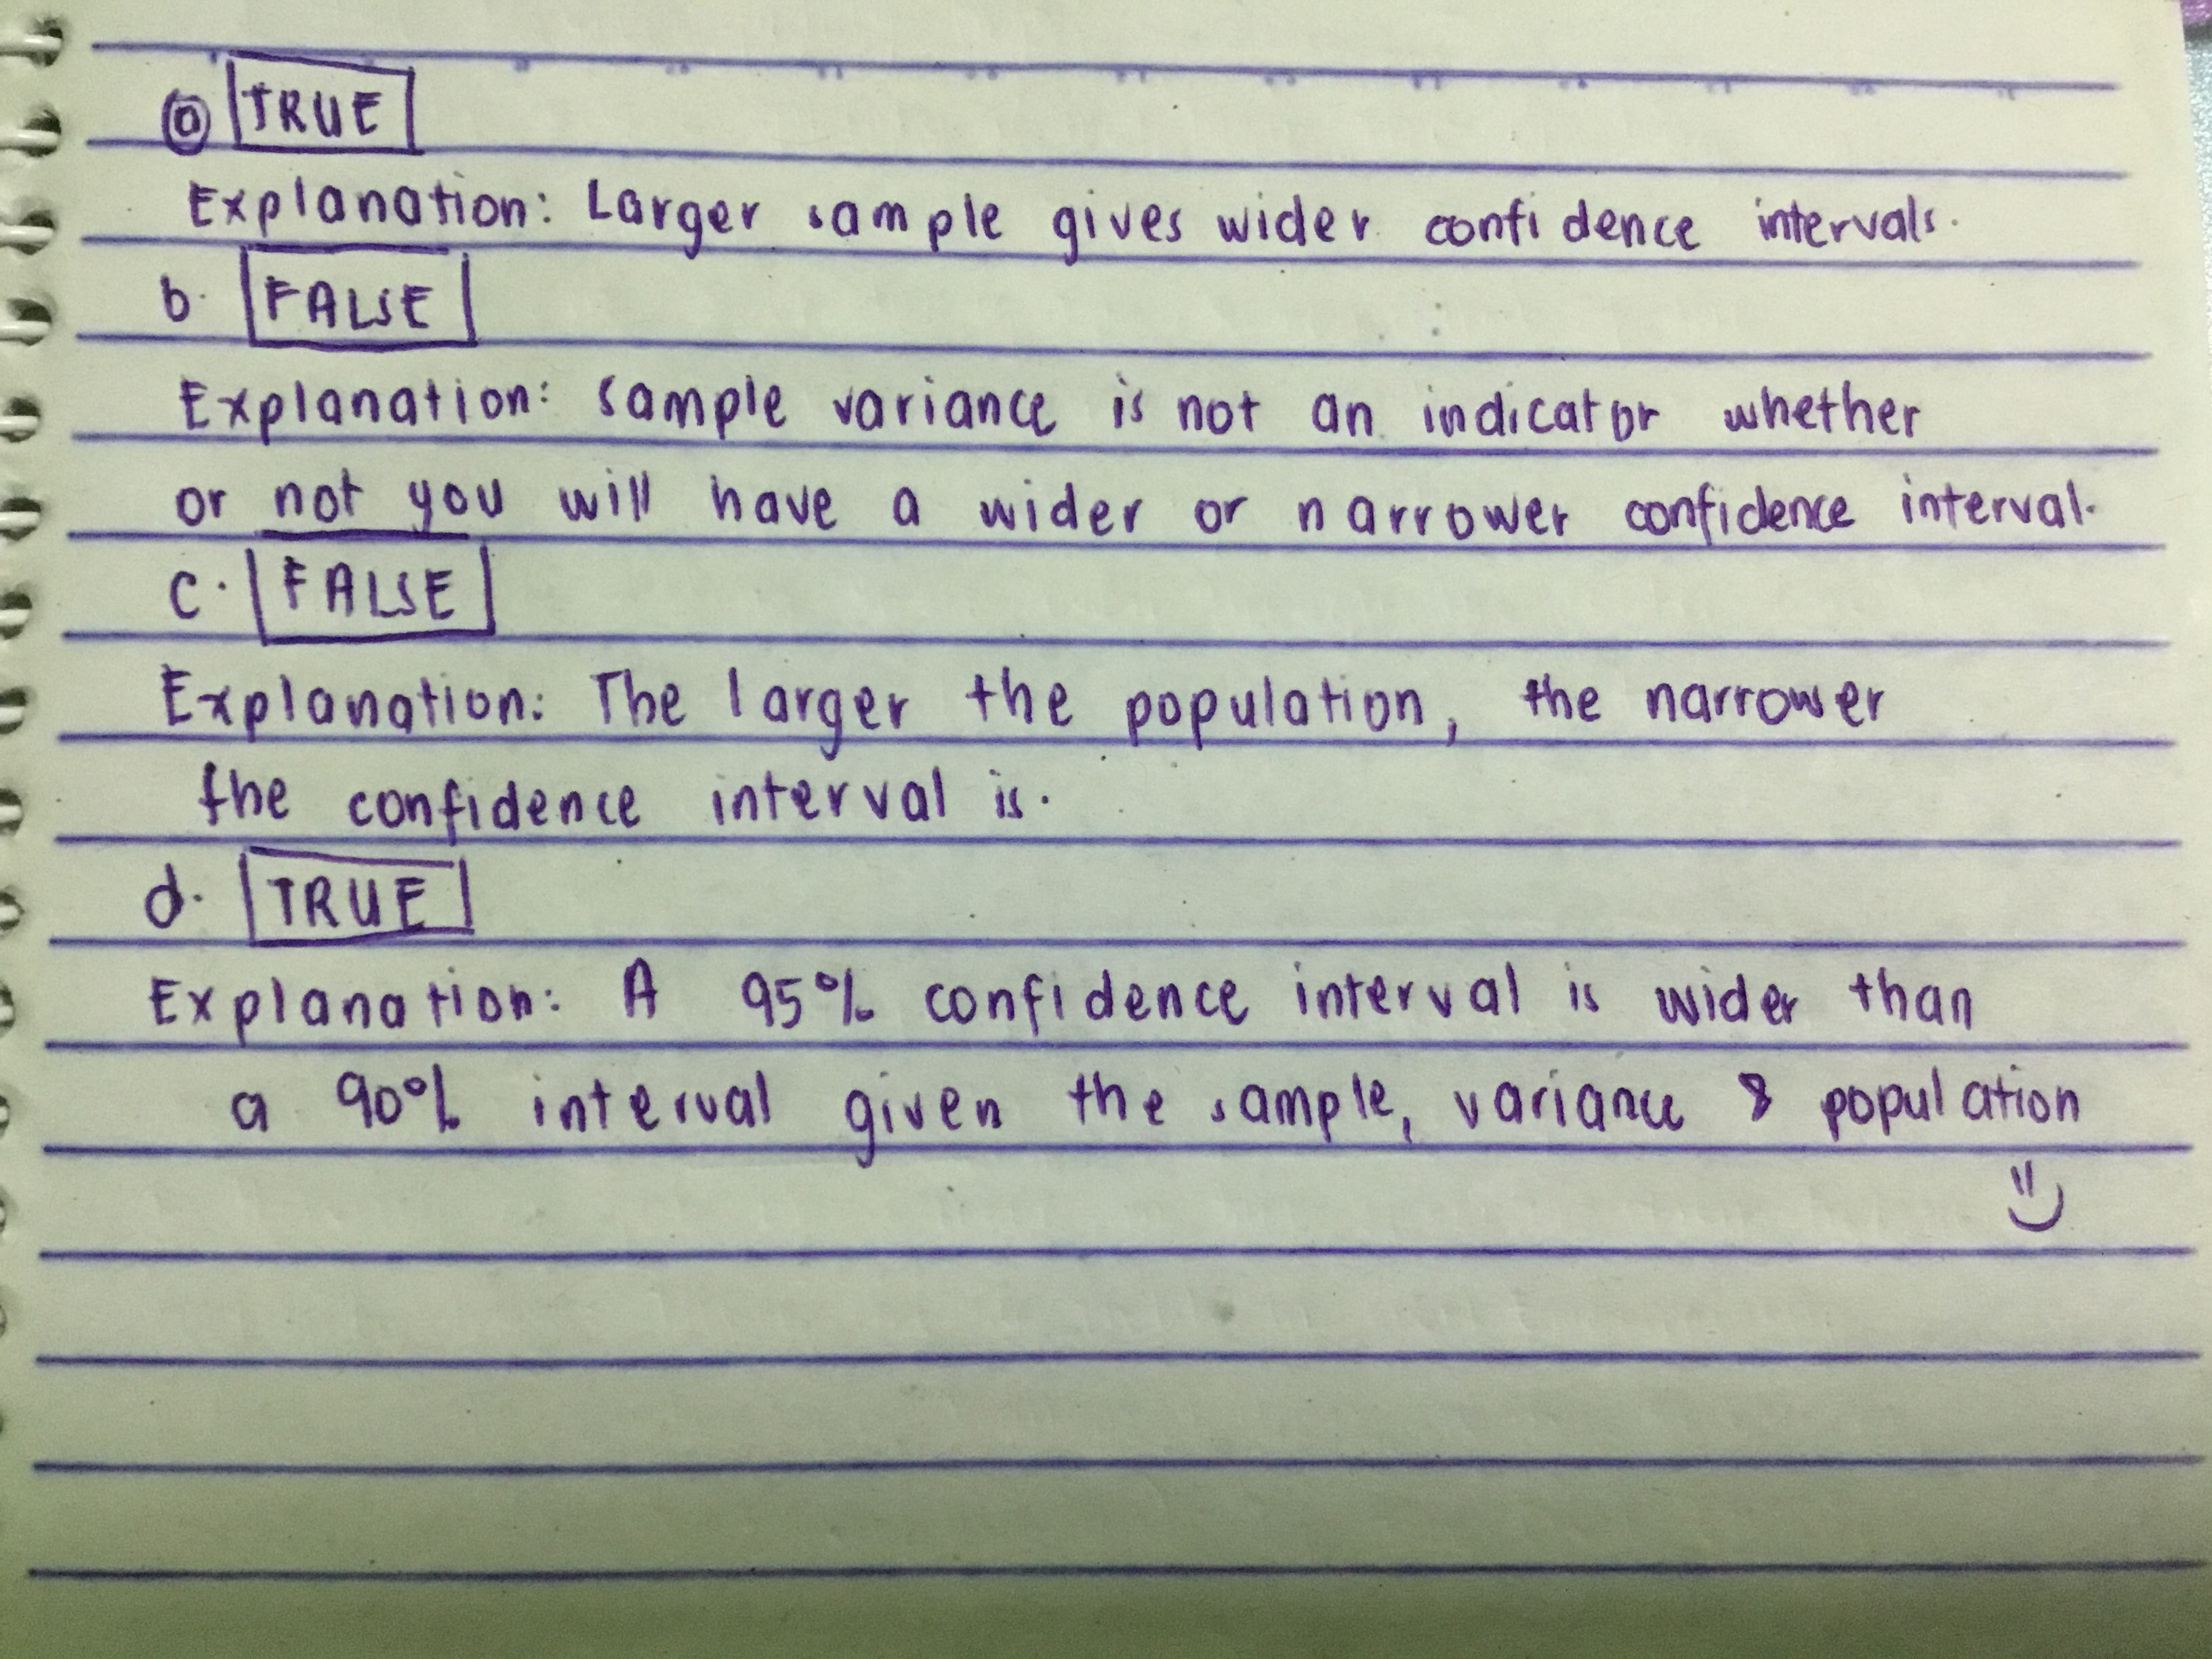 a TRUE
Explanation: Larger sample gives wider confidence intervals.
b. FALSE
Explanation: sample variance is not an indicator whether
or not you will have a wider or narrower confidence interval.
c. FALSE
Explanation: The larger the population, the narrower
the confidence interval is.
d. TRUE
Explanation: A 95% confidence interval is wider than
a 90% interval given the sample, variance & population